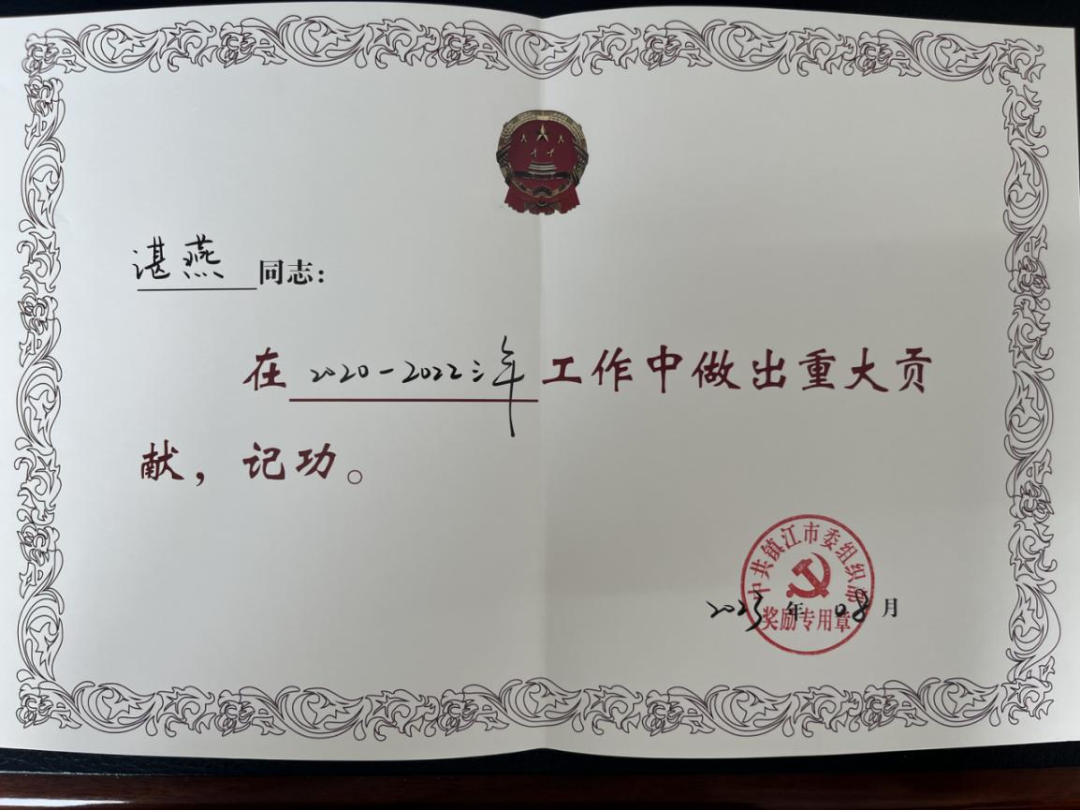 湛燕同志：
在2020-2022三年工作中做出重大贡
献，记功。
中共镇江市委组织部
奖励专用章
2023年08月